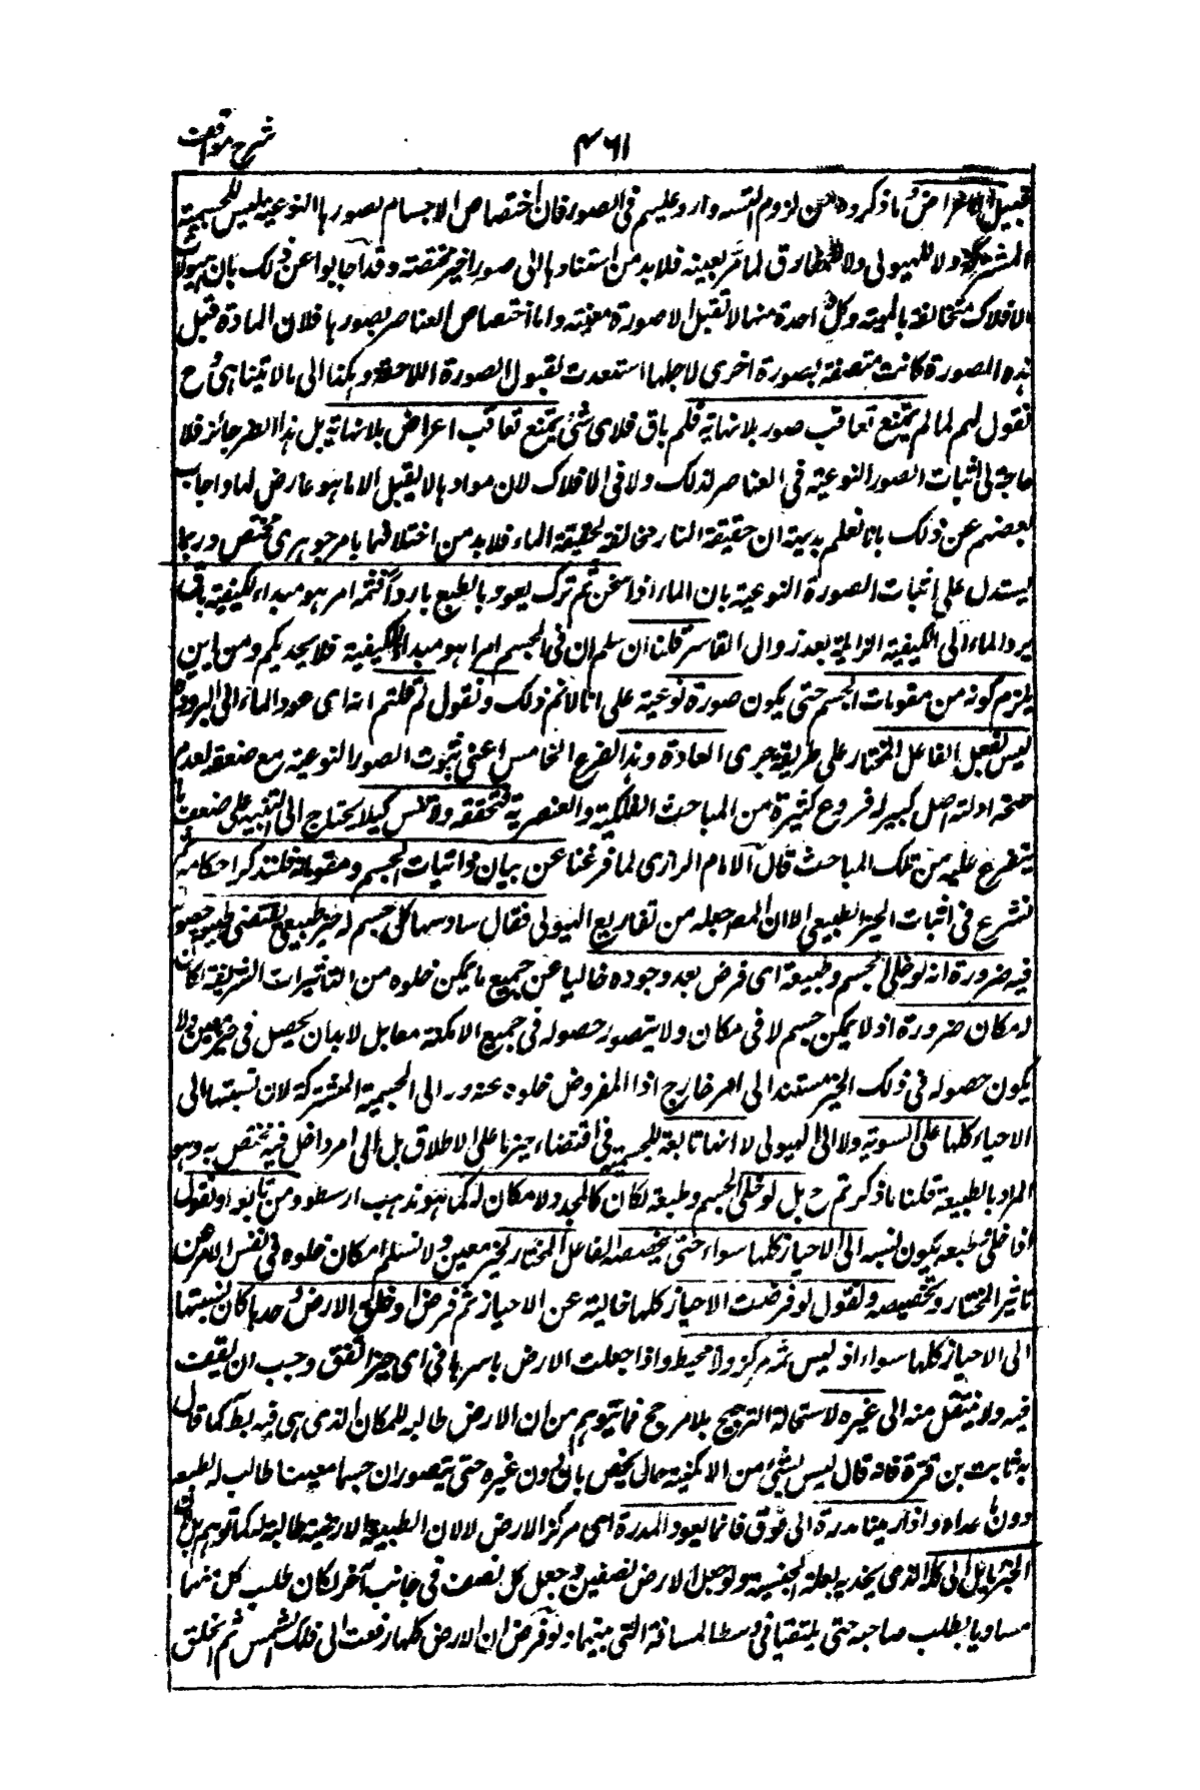 شرح مواقف
۴۶۱
قبيل الاعراض ما ذكروه من لزوم التسلسل وارد عليهم فى الصور فان اختصاص الاجسام بصورها النوعية ليس للجسمية
المشتركة ولا للهيولى ولا للمفارق لما مر بعينه فلا بد من استنادها الى صور اخر مختصة وقد اجابوا عن ذلك بان هيولات
الافلاك متخالفة بالمهية وكل واحدة منها لا تقبل الا صورة معينة واما اختصاص العناصر بصورها فلان المادة قبل
هذه الصورة كانت متصفة بصورة اخرى لاجلها استعدت لقبول الصورة اللاحقة وهكذا الى ما لا يتناهى وح
نقول لهم لما لم يمتنع تعاقب صور بلا نهاية فلم باق فلاى شئ يمتنع تعاقب اعراض بلا نهاية بل هذا الطر جائز فلا
حاجة الى اثبات الصور النوعية فى العناصر لذلك ولا فى الافلاك لان موادها لا يقبل الا ما هو عارض لها واجاب
بعضهم عن ذلك بانا نعلم بديهة ان حقيقة النار مخالفة لحقيقة الماء فلا بد من اختلافهما بامر جوهرى مختص وربما
يستدل على اثبات الصورة النوعية بان الماء اذا سخن ثم ترك يعود بالطبع باردا فثمه امر هو مبداء لكيفية باق
يرد الماء الى الكيفية الزايلة بعد زوال القاسر قلنا ان سلم ان فى الجسم امرا هو مبدأ الكيفية فلا يجديكم ومن اين
يلزم كونه من مقومات الجسم حتى يكون صورة نوعية على انا لا نم ذلك ونقول لم قلتم انه اى عود الماء الى البرودة
ليس بفعل الفاعل المختار على طريقة جرى العادة وهذا الفرع الخامس اعنى ثبوت الصور النوعية مع ضعفه لعدم
صحة ادلته اصل كبير له فروع كثيرة من المباحث الفلكية والعنصرية فتحققه ولا تنس كيلا يحتاج الى التنبيه على ضعف ما
يتفرع عليه من تلك المباحث قال الامام الرازى لما فرغنا عن بيان ذاتيات الجسم ومقوماته فلنذكر احكامه ثم
نشرع فى اثبات الحيز الطبيعى الا ان المص جعله من تفاريع الهيولى فقال سادسها كل جسم له حيز طبيعى يقتضى طبيعته حصوله
فيه ضرورة انه لو خلى الجسم وطبيعة اى فرض بعد وجوده خاليا عن جميع ما يمكن خلوه من التاثيرات الغريبة لكان
له مكان ضرورة اذ لا يمكن جسم لا فى مكان ولا يتصور حصوله فى جميع الامكنة معا بل لا بد ان يحصل فى حيز معين ولا
يكون حصوله فى ذلك الحيز مستندا الى امر خارج اذا المفروض خلوه عنه ور الى الجسمية المشتركة لان نسبتها الى
الاحياز كلها على السوية ولا الى الهيولى لا انها تابعة للجسمية فى اقتضاء حيز ما على الاطلاق بل الى امر داخل فيه مختص به وهو
المراد بالطبيعة قلنا ما ذكرتم ح بل لو خلى الجسم وطبعه لكان كالمجرد ولا مكان له كما هو مذهب ارسطو ومن تابعه او نقول
اذا خلى وطبعه يكون نسبه الى الاحياز كلها سواء حتى يخصصه الفاعل المختار بحيز معين ولا نسلم امكان خلوه فى نفس الامر عن
تاثير المختار وتخصيصه ونقول لو فرضت الاحياز كلها خالية عن الاحياز ثم فرض او خلق الارض وحدها كان نسبتها
الى الاحياز كلها سواء اذ ليس ثمه مركز ولا محيط واذا جعلت الارض باسرها فى اى حيز اتفق وجب ان يقف
فيه ولا ينتقل منه الى غيره لاستحالة الترجيح بلا مرجح فما تيوهم من ان الارض طالبة للمكان الذى هى فيه بط كما قال
به ثابت بن قرة فانه قال ليس لشئ من الامكنة حال يخص به دون غيره حتى يتصور ان جسما معينا طالب له لطبعه
دون ما عداه واذا رمينا مدرة الى فوق فانما يعود المدرة اى مركز الارض لا لان الطبيعة الارضية طالبة له كما توهم بل لان
الجزء مايل الى كله الذى يجذبه بعلة الجنسية ولو جعل الارض نصفين وجعل كل نصف فى جانب آخر لكان طلب كل منهما
مساويا لطلب صاحبه حتى يلتقيا فى وسط المسافة التى بينهما ولو فرض ان الارض كلها رفعت الى فلك الشمس ثم اطلق